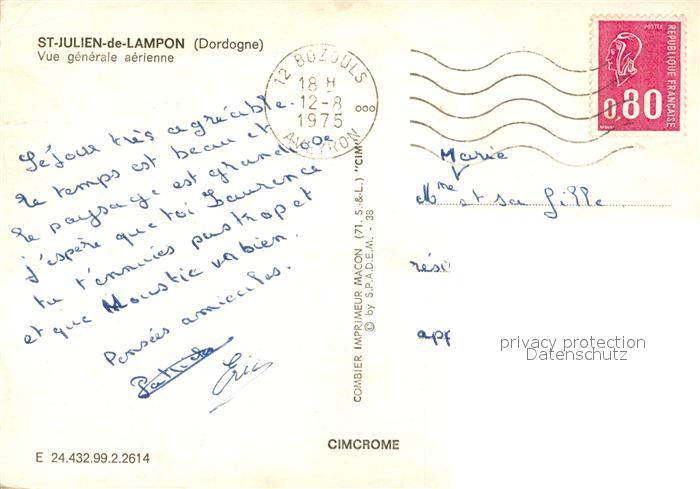 ST-JULIEN-de-LAMPON (Dordogne)
Vue générale aérienne
12 BOZOULS
18 H
12-8
1975
AVEYRON
POSTES
REPUBLIQUE FRANÇAISE
0,80
Séjour très agréable.
le temps est beau et
le paysage est grandiose
J'espère que toi Laurence
tu t'ennuies pas trop et
et que Moustic va bien.
Pensées amicales.
Patricia
Eric
Marie
Mme et sa fille
rési
app
privacy protection
Datenschutz
COMBIER IMPRIMEUR MACON (71. S.-&-L.) "CIM"
© by S.P.A.D.E.M. - 38
CIMCROME
E 24.432.99.2.2614